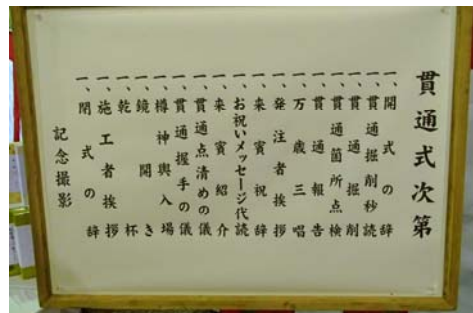 貫通式次第
一、開式の辞
一、貫通掘削秒読
一、貫通掘削
一、貫通箇所点検
一、貫通報告
一、万歳三唱
一、発注者挨拶
一、来賓祝辞
一、お祝いメッセージ代読
一、来賓紹介
一、貫通点清めの儀
一、貫通握手の儀
一、樽神輿入場
一、鏡開き
一、乾杯
一、施工者挨拶
一、閉式の辞
記念撮影